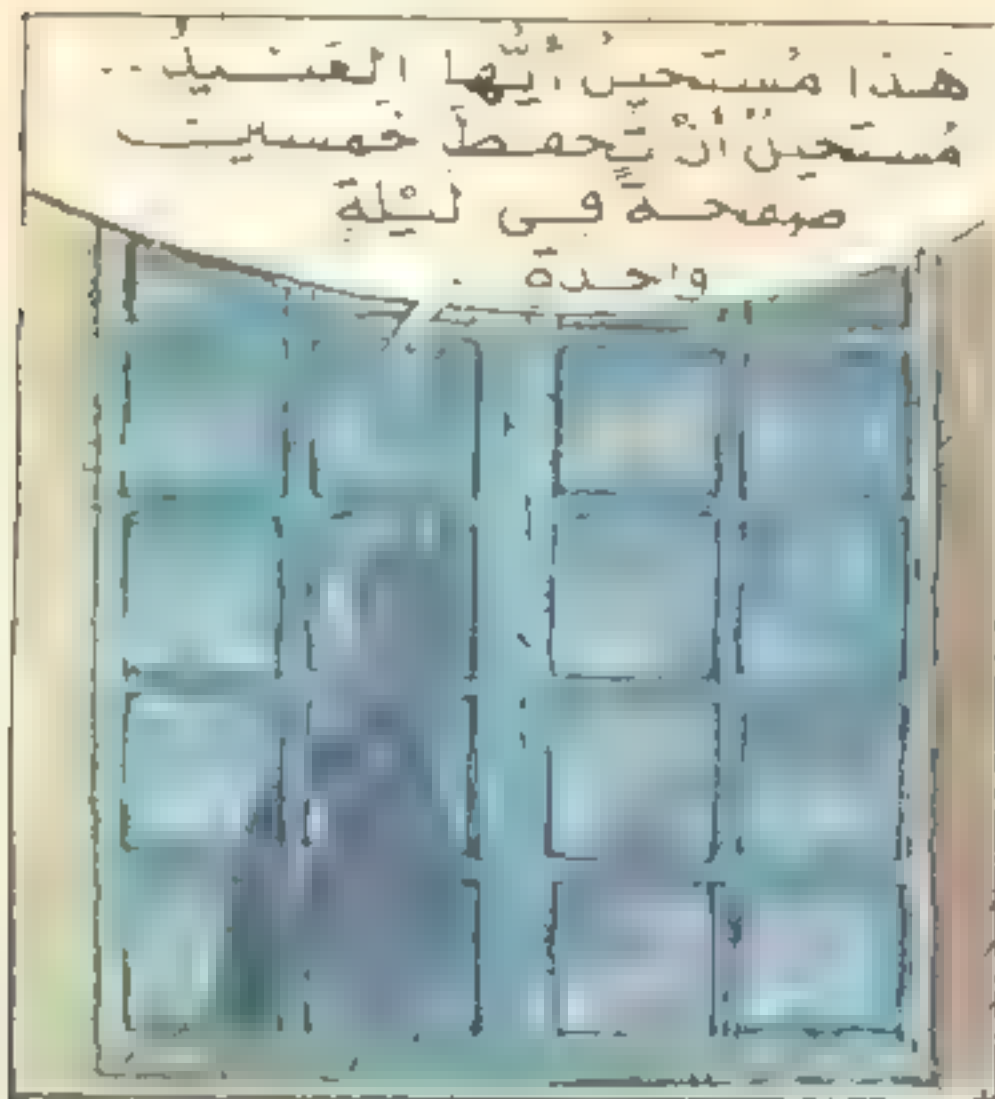 هَذَا مُسْتَحِيلٌ أَيُّهَا العَنِيدُ ..
مُسْتَحِيلٌ أَنْ تَحْفَظَ خَمْسَمِائَةِ
صَفْحَةً فِي لَيْلَةٍ
وَاحِدَةٍ .